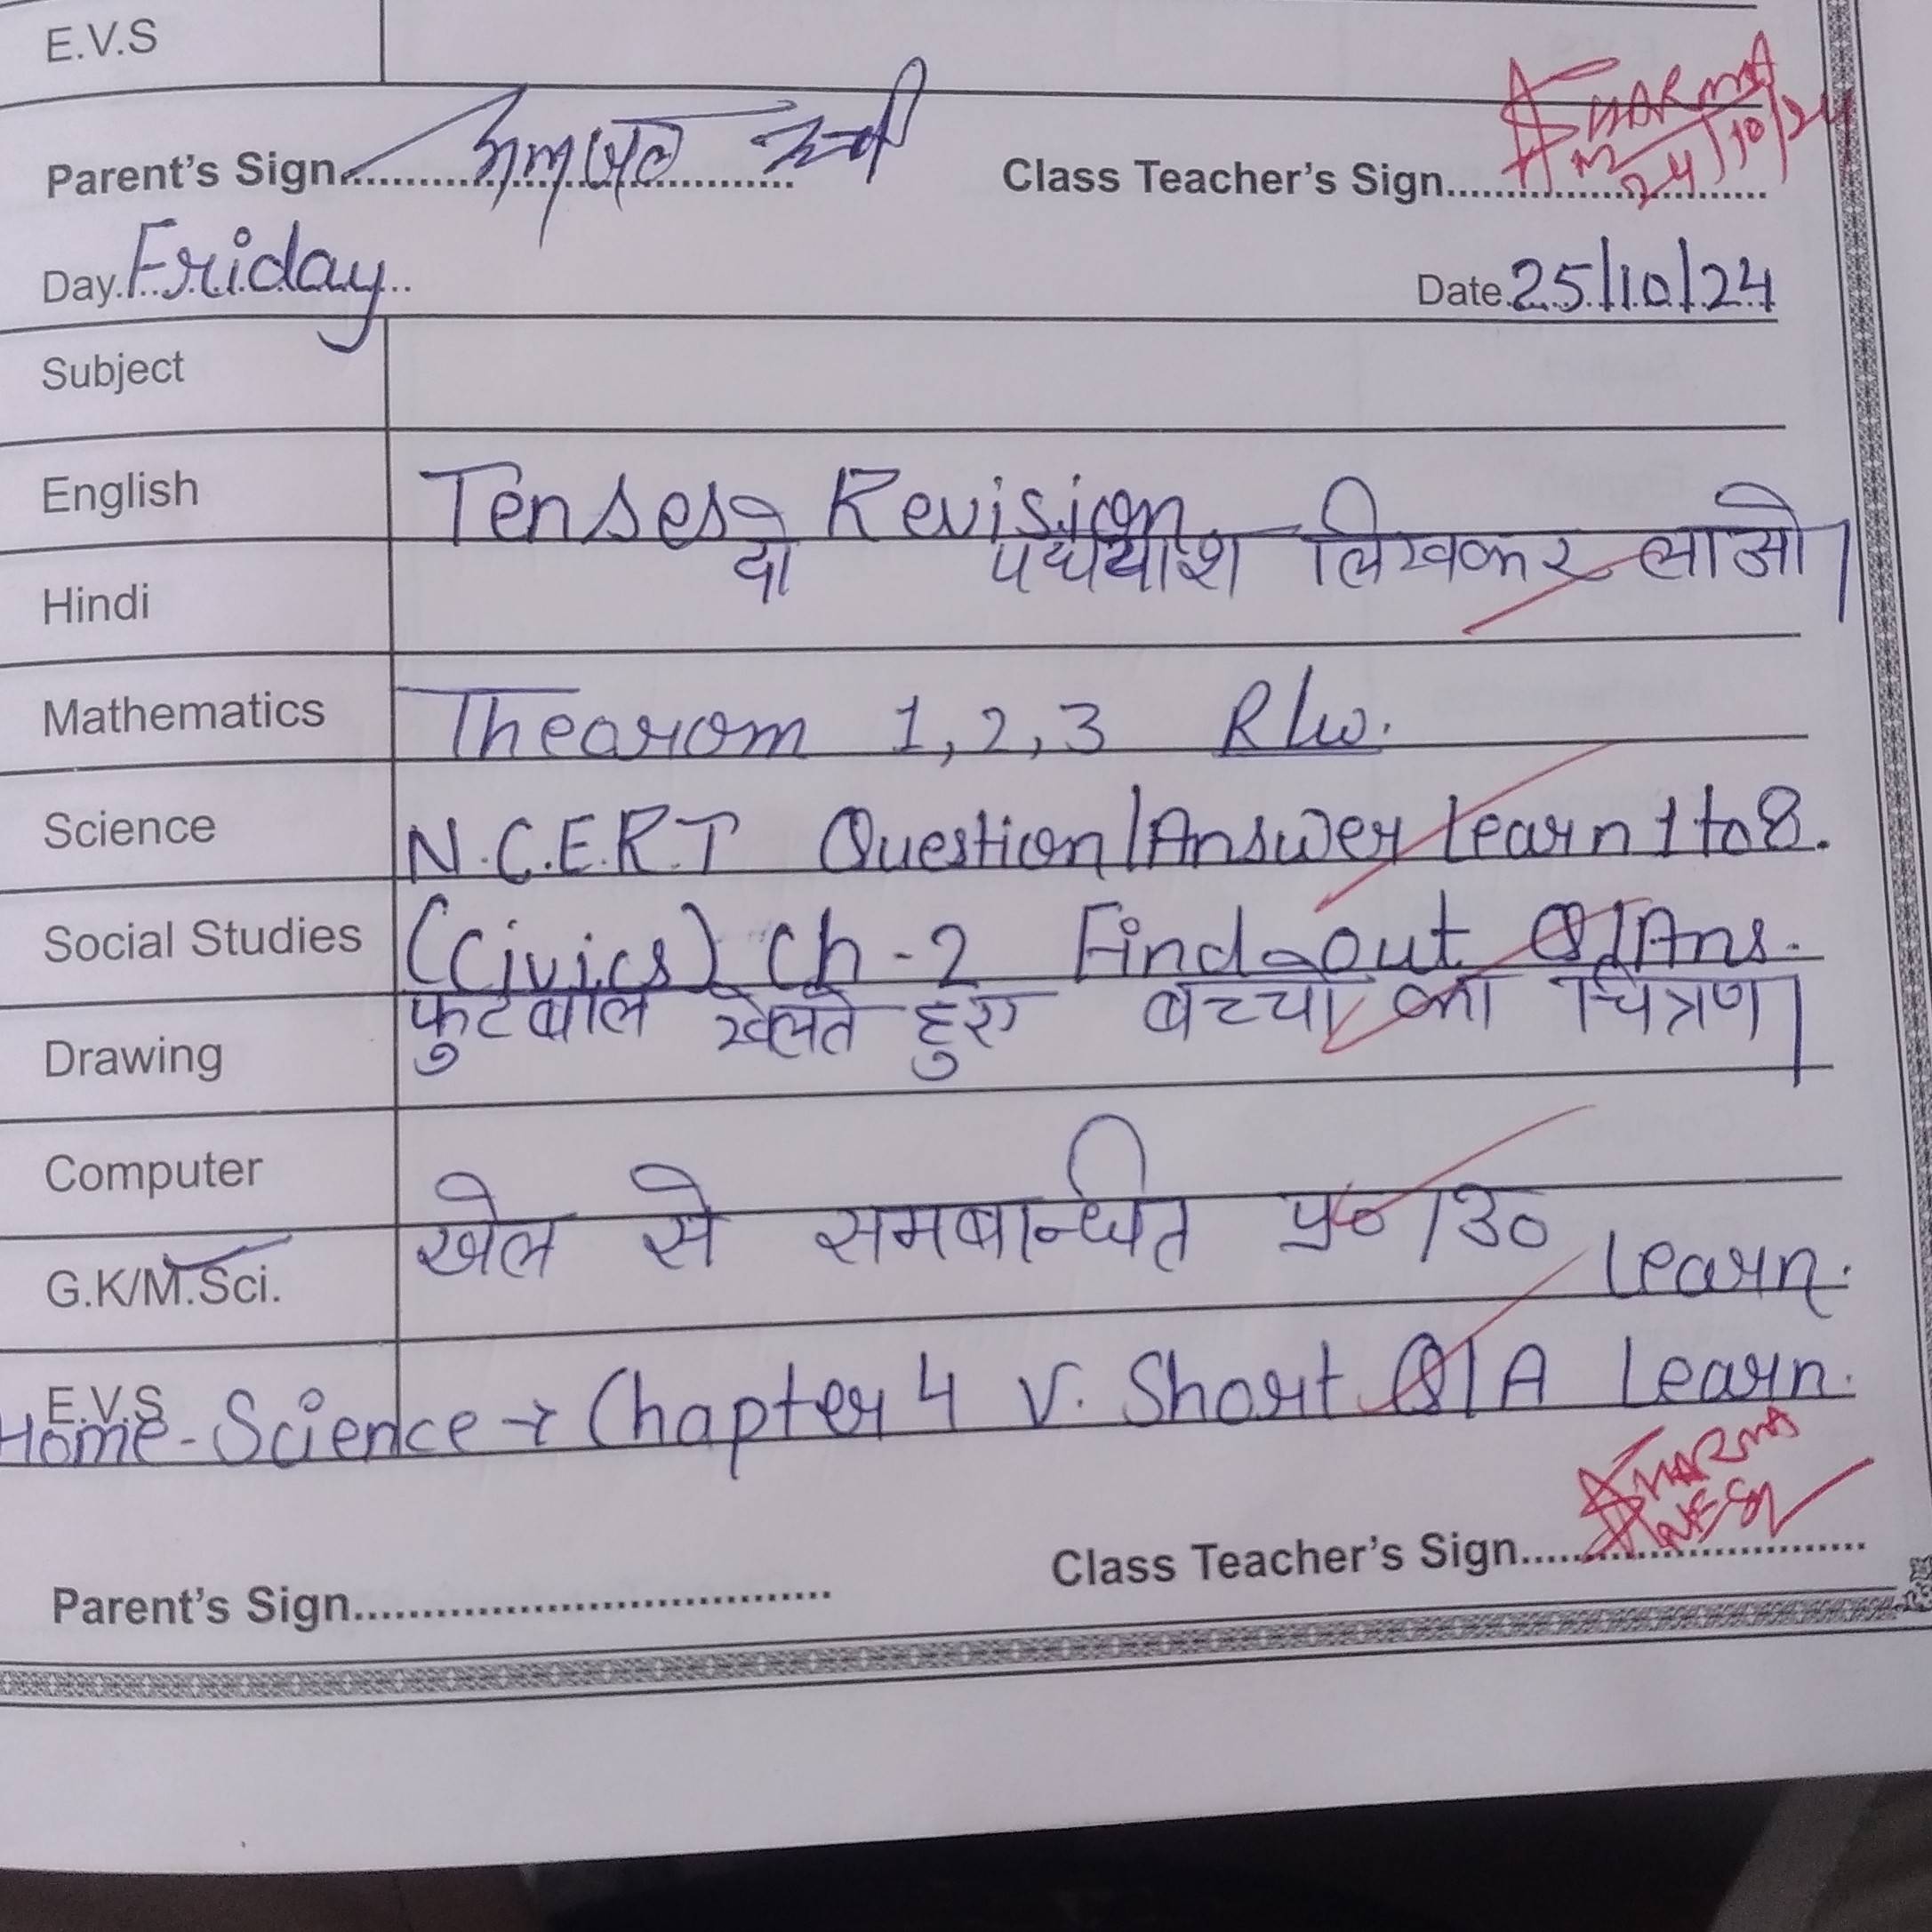 E.V.S
Parent's Sign..........
Class Teacher's Sign.......... SHARMA
24/10/24
Day. Friday..
Date. 25/10/24
Subject
English Tenses Revision
Hindi दो पधयांश लिखकर लाओ।
Mathematics Thearom 1, 2, 3 R/w.
Science N.C.E.R.T Question/Answer learn 1 to 8.
Social Studies (Civics) Ch-2 Find-out Q/Ans.
Drawing फुटबाल खेलते हुए बच्चों का चित्रण।
Computer
G.K/M.Sci. खेल से समबान्धित प्र०/उ० learn.
E.V.S
Home-Science → Chapter 4 V. Short Q/A Learn.
Class Teacher's Sign.......... SHARMA
Parent's Sign..........